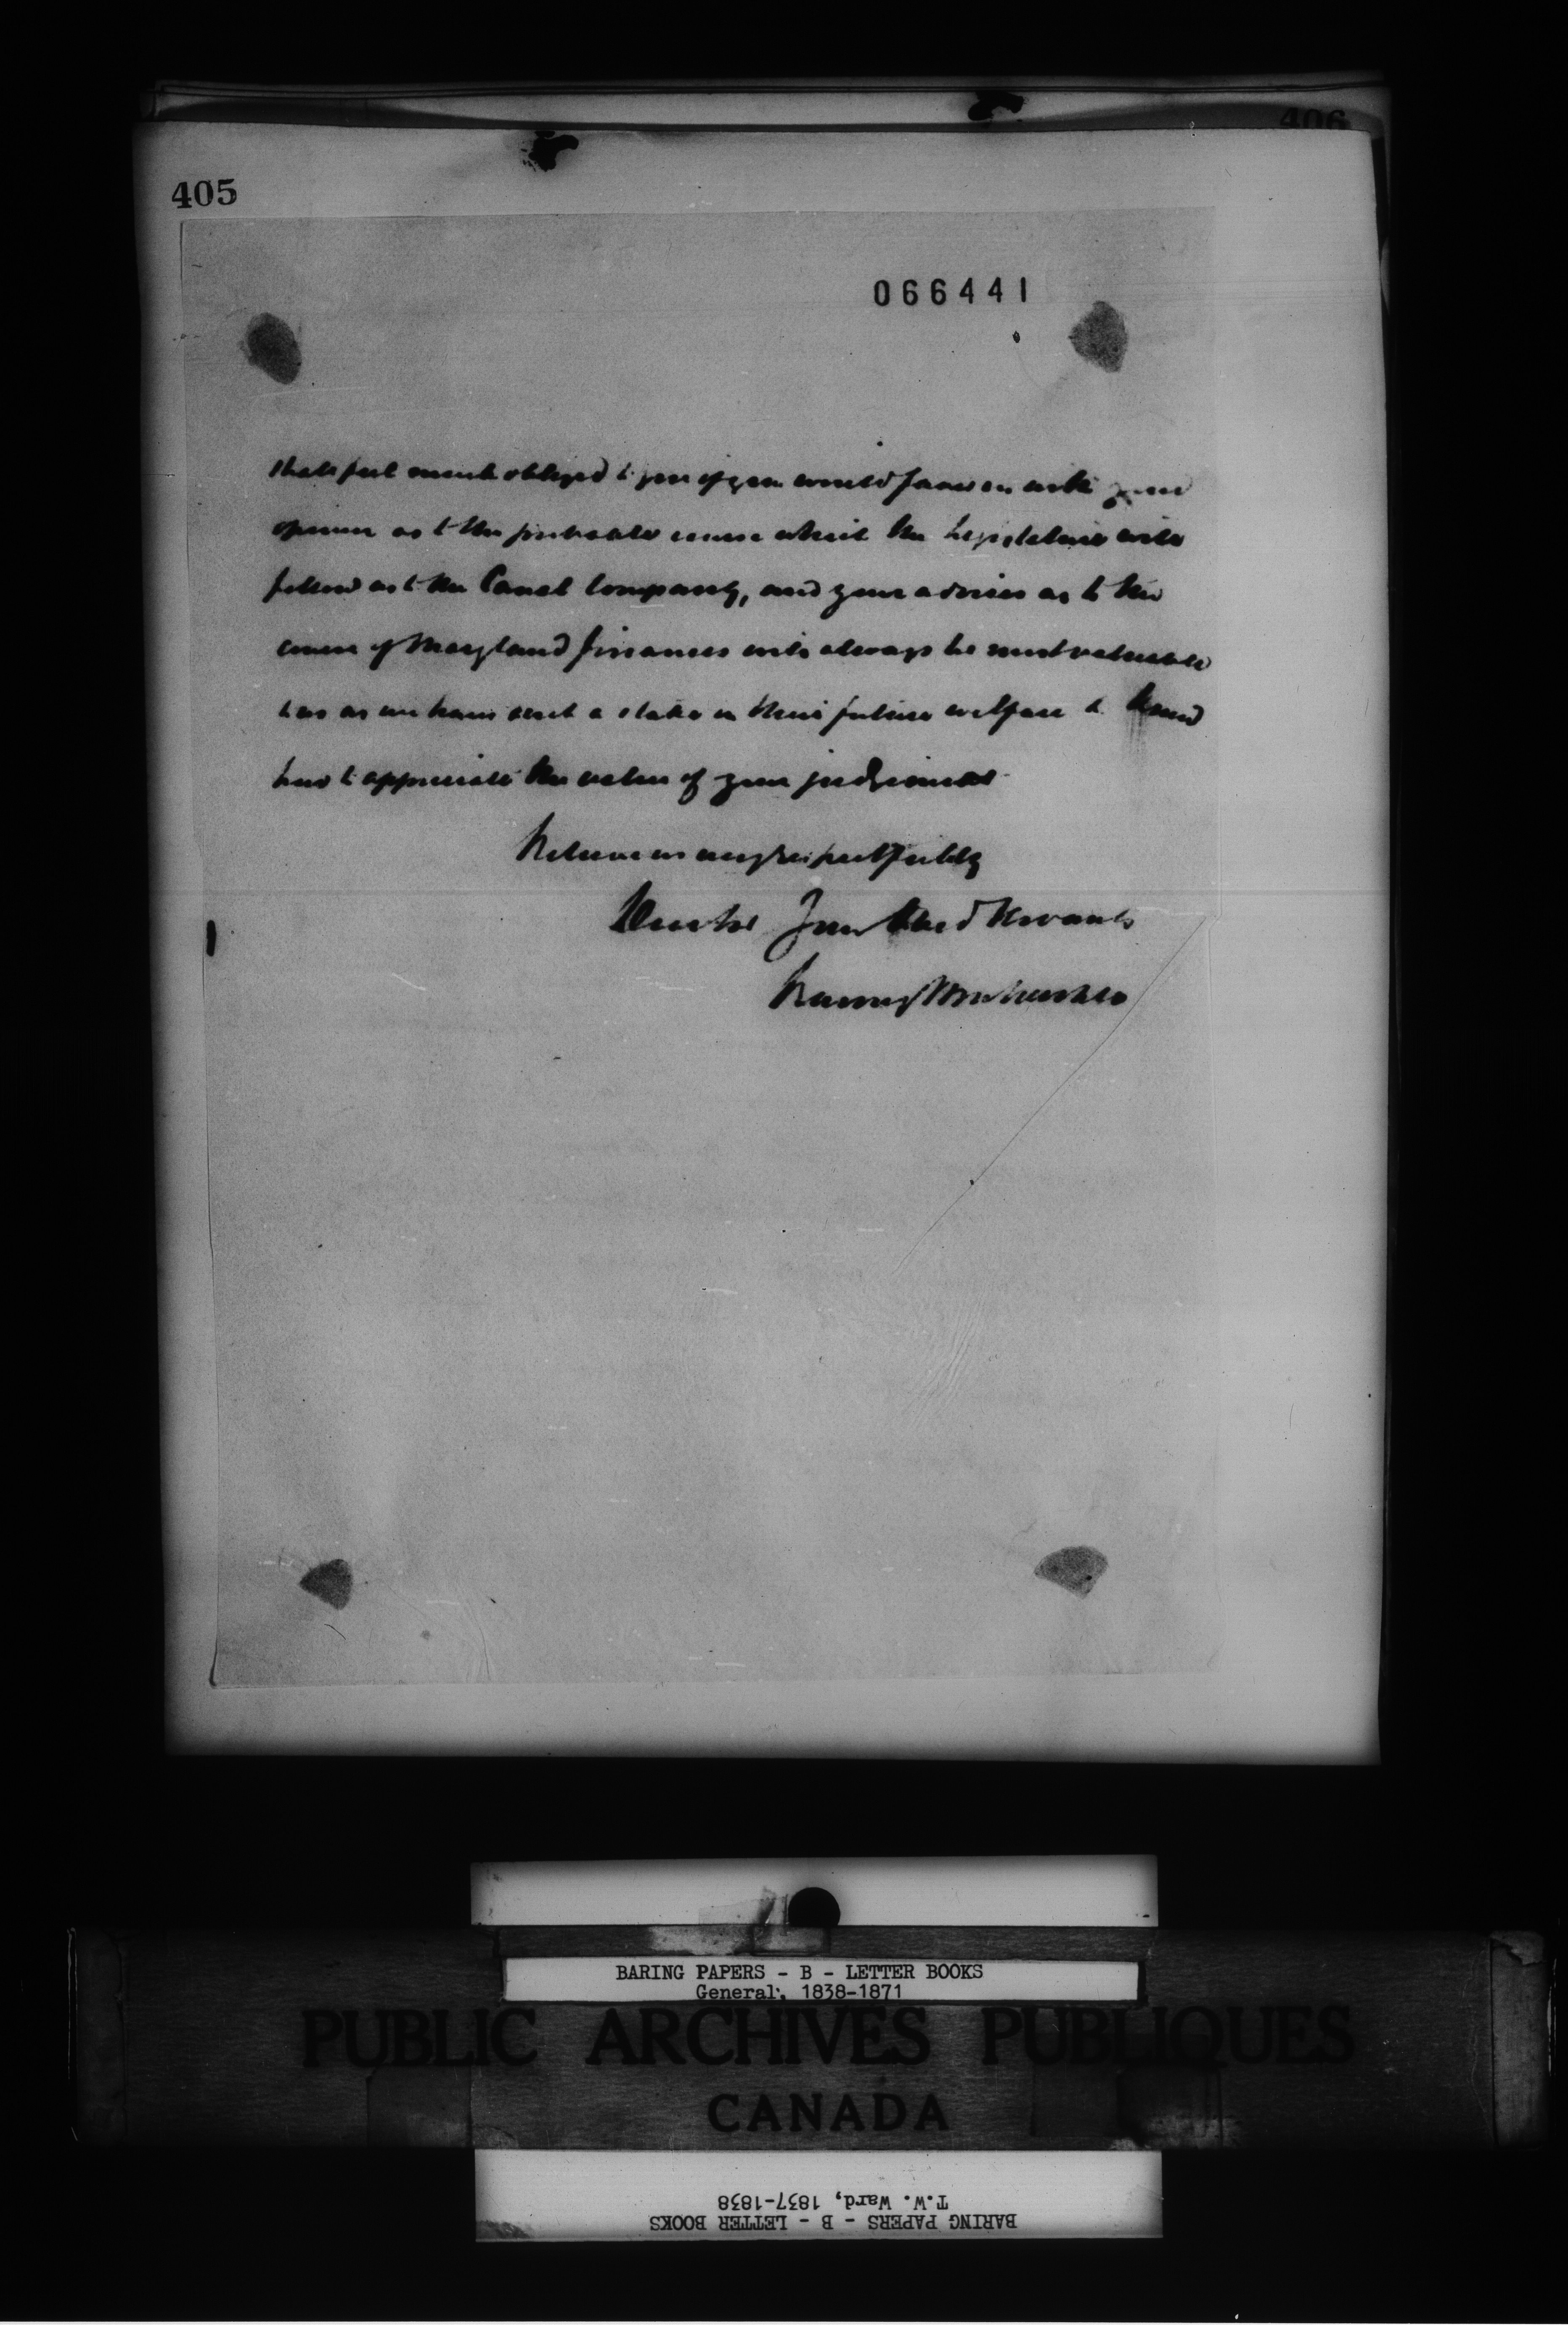 406
405
066441
shall feel much obliged to you if you would favor us with your
opinion as to the probable course which the Legislature will
follow as to the Canal Company, and your advice as to the
course of Maryland finances will always be most valuable
to us as we have such a stake in their future welfare &
how to appreciate the value of your judgement
Believe us very respectfully
Your Obed Servants
Baring Brothers &Co
BARING PAPERS - B - LETTER BOOKS
General, 1838-1871
PUBLIC ARCHIVES PUBLIQUES
CANADA
T.W. Ward, 1837-1838
BARING PAPERS - B - LETTER BOOKS